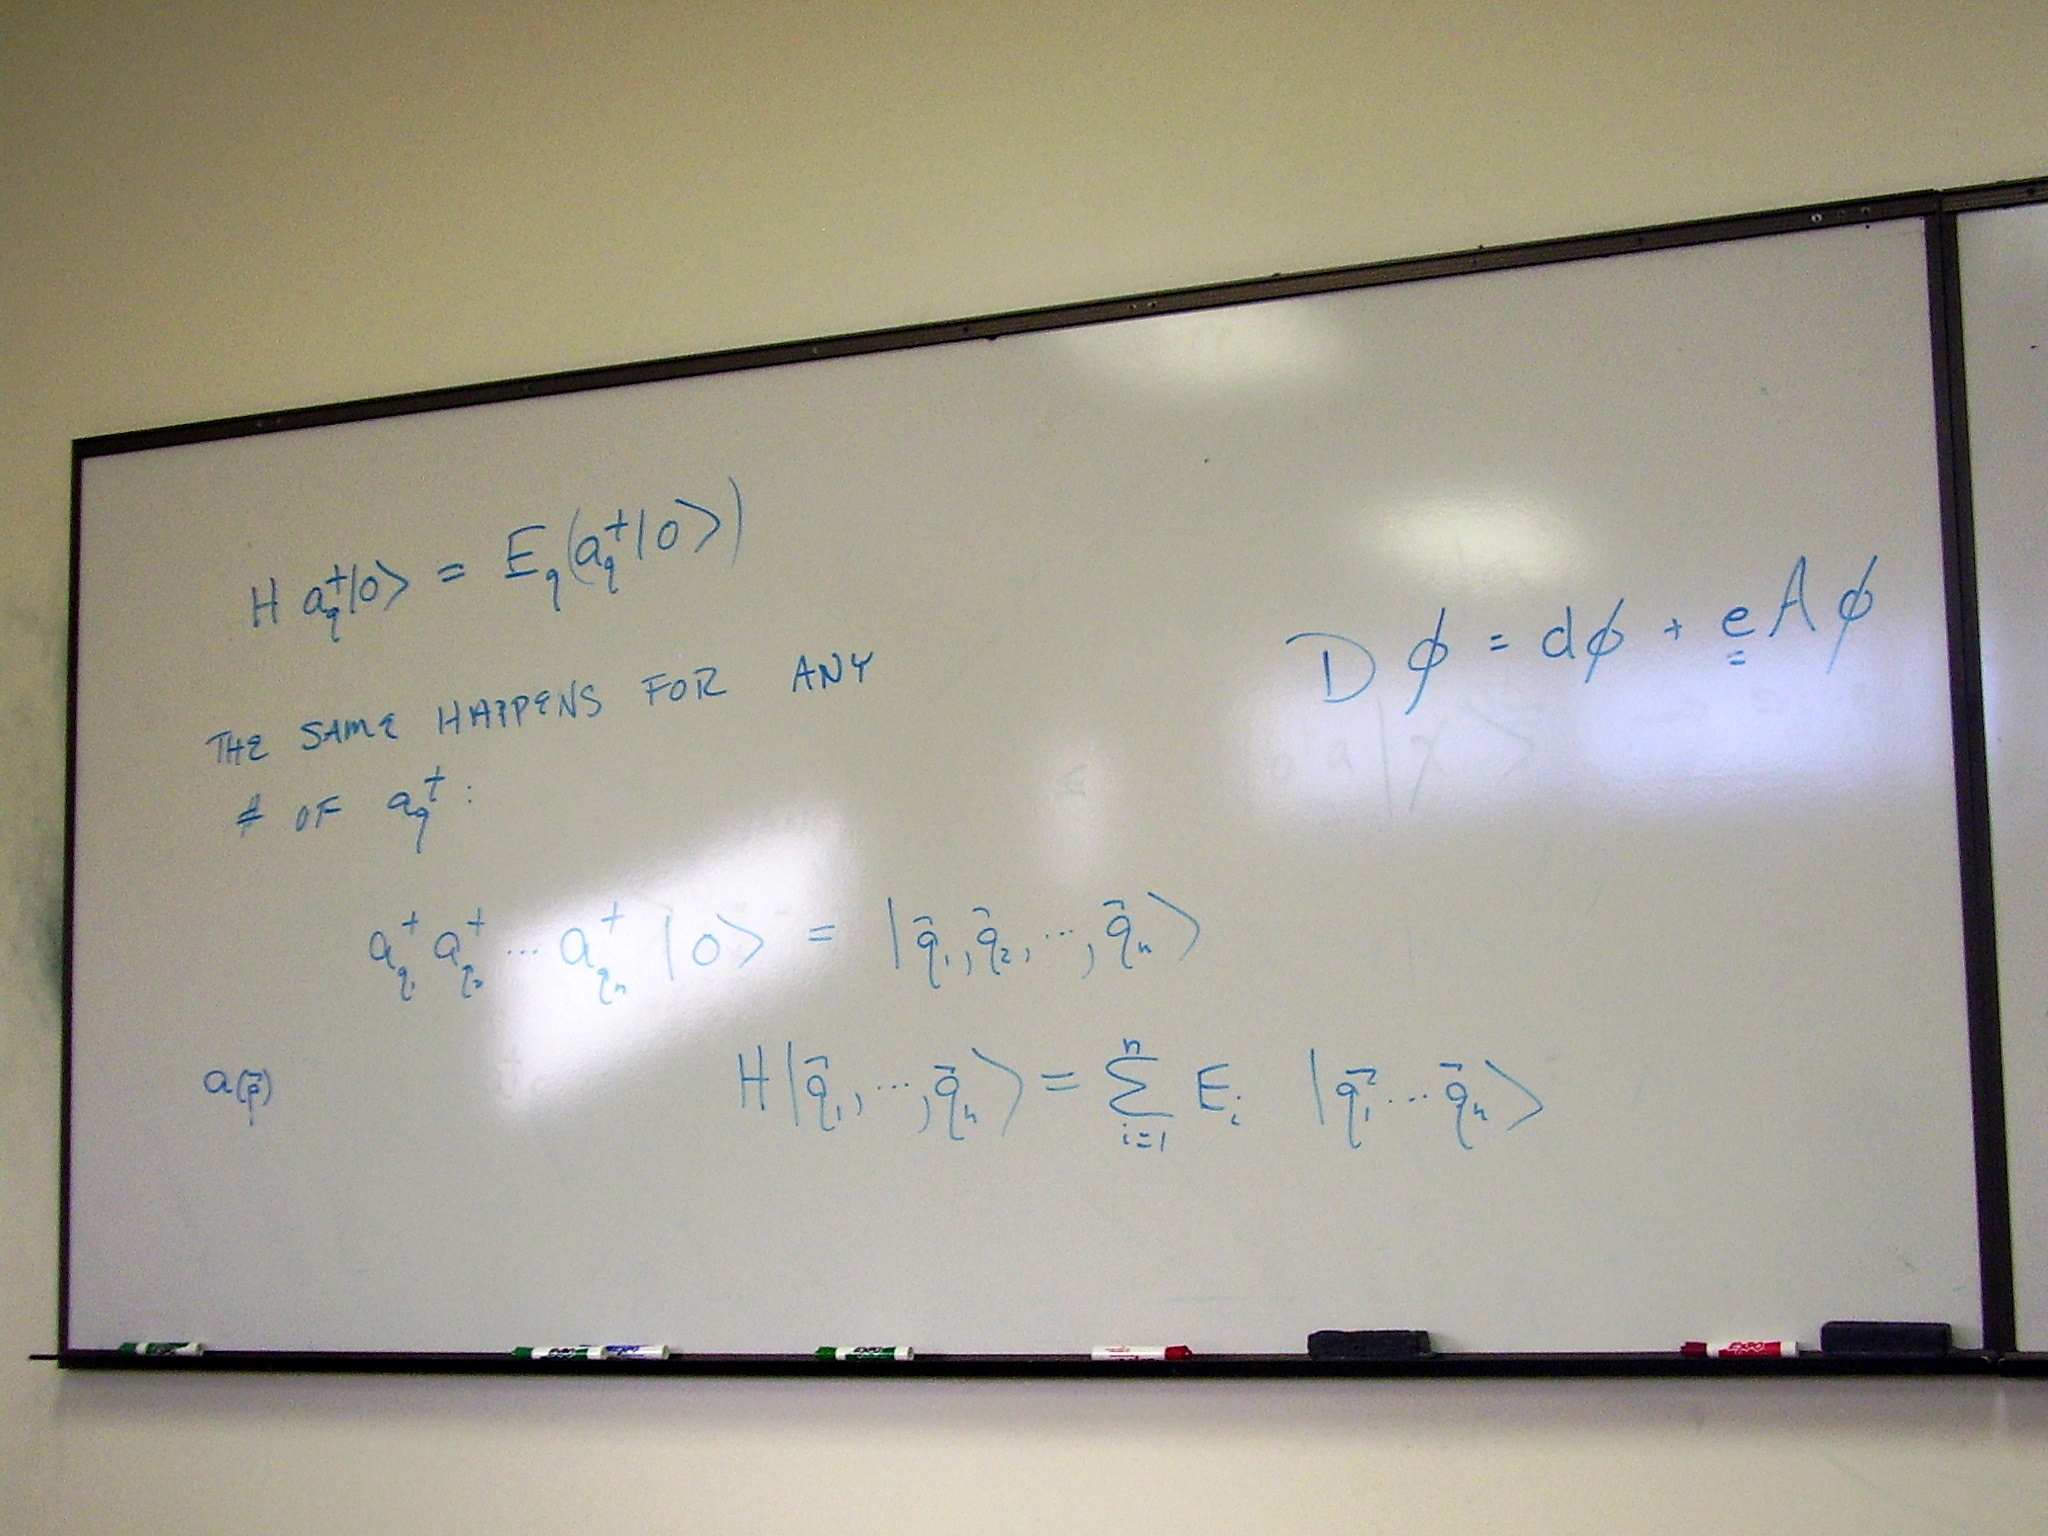 H a_q^†|0> = E_q(a_q^†|0>)
Dϕ = dϕ + eAϕ
THE SAME HAPPENS FOR ANY
# OF a_q^†:
a_{q_1}^† a_{q_2}^† ... a_{q_n}^† |0> = |q⃗_1, q⃗_2, ..., q⃗_n>
a(p⃗)
H|q⃗_1, ..., q⃗_n> = Σ_{i=1}^n E_i |q⃗_1 ... q⃗_n>
EXPO
EXPO
EXPO